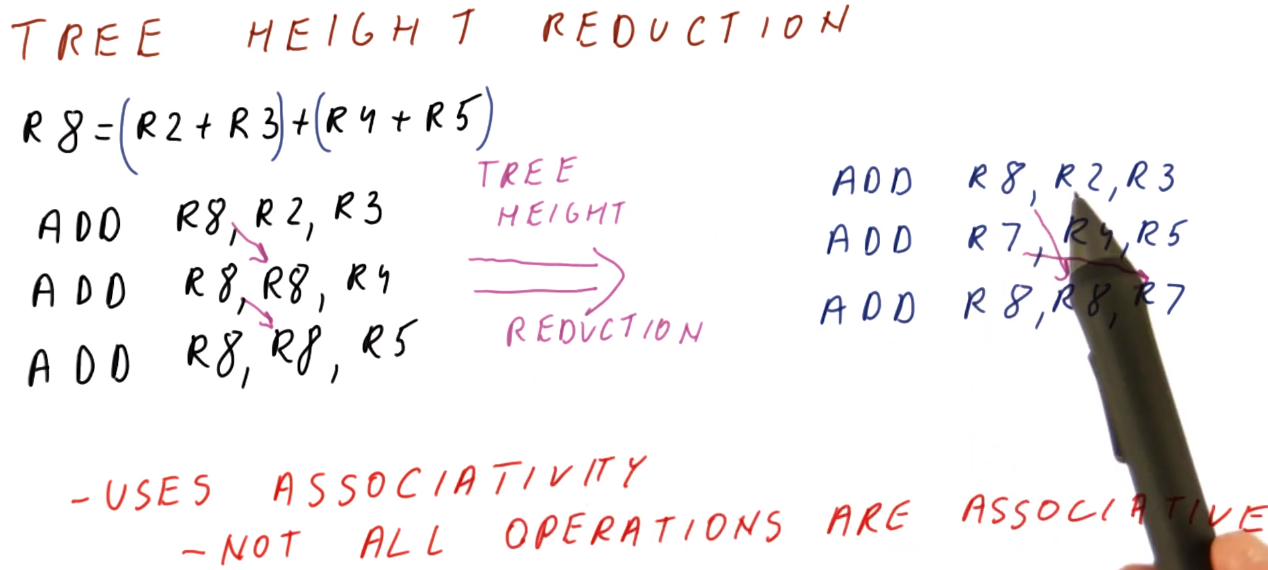 TREE HEIGHT REDUCTION
R8=(R2+R3)+(R4+R5)
ADD R8, R2, R3
ADD R8, R8, R4
ADD R8, R8, R5
TREE
HEIGHT
REDUCTION
ADD R8, R2, R3
ADD R7, R4, R5
ADD R8, R8, R7
-USES ASSOCIATIVITY
-NOT ALL OPERATIONS ARE ASSOCIATIVE